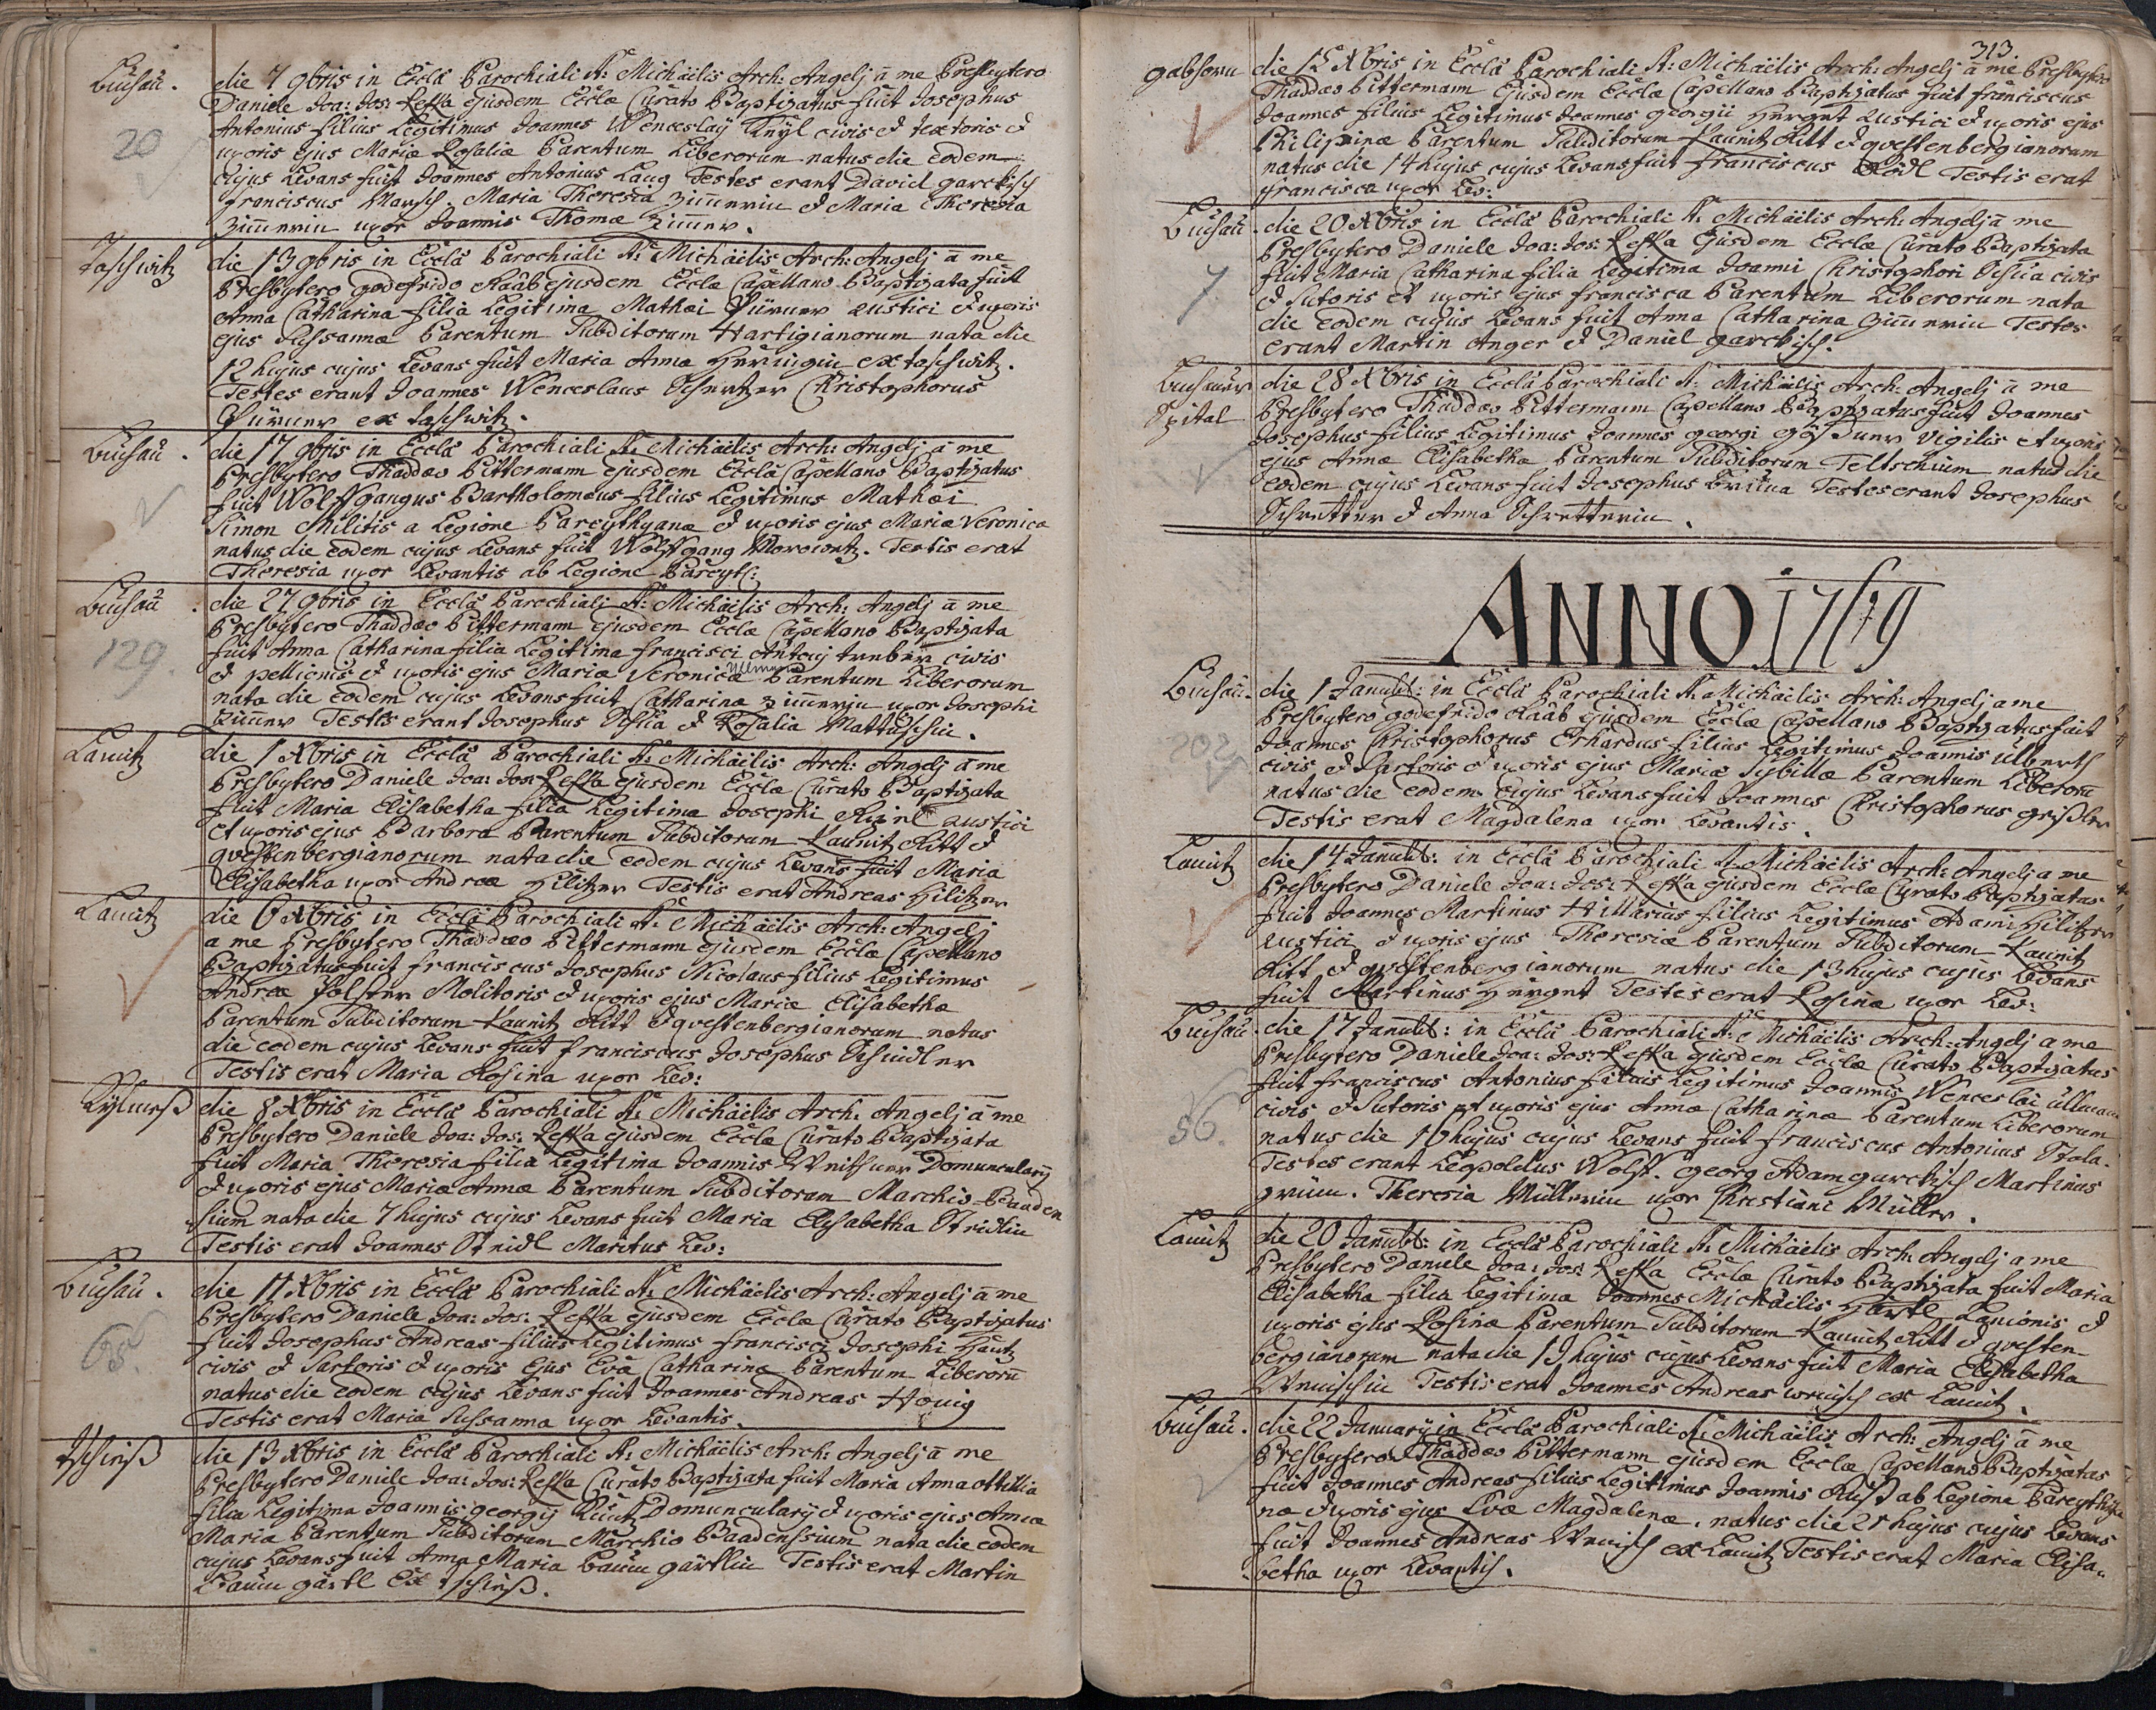 Buchau. die 7 9bris in Eccla Parochiali S: Michäelis Arch: Angelj ā me Presbytero
Daniele Joa: Jos: Reska ejusdem Eccla Curato Baptizatus fuit Josephus
20 Antonius filius Legitimus Joannes Wenceslaÿ Knÿl civis & textoris &
uxoris ejus Maria Rosaliæ Parentum Liberorum natus die eodem
cujus Levans fuit Joannes Antonius Lang Testes erant David garckisch
franciscus Maresch. Maria Theresia Zim̄erin & Maria Theresia
Zim̄erin uxor Joannis Thomæ Zim̄er.
Taschwitz die 13 9bris in Eccla Parochiali S: Michäelis Arch: Angelj ā me
Presbytero godefrido Raab ejusdem Eccla Capellano Baptizata fuit
Anna Catharina filia Legitima Mathæi rustici & uxoris
ejus Sussannæ Parentum Subditorum Hartigianorum nata die
12 hujus cujus Levans fuit Maria Anna Heringin ex taschwitz.
Testes erant Joannes Wenceslaus Christophorus
ex taschwitz.
Buchau. die 17 9bris in Eccla Parochiali S: Michäelis Arch: Angelj ā me
Presbytero Thaddæo Pittermann ejusdem Eccla Capellano Baptizatus
fuit Wolffgangus Bartholomæus filius Legitimus Mathæi
Simon Militis a Legione Pareythyanæ & uxoris ejus Mariæ Veronica
natus die eodem cujus Levans fuit Wolffgang Testis erat
Theresia uxor Levantis ab Legione Pareyt:
Buchau. die 27 9bris in Eccla Parochialj S: Michäelis Arch: Angelj ā me
Presbytero Thaddæo Pittermann ejusdem Eccla Capellano Baptizata
129. fuit Anna Catharina filia Legitima francisci Antonj treber civis
& pellionis & uxoris ejus Mariæ Veronica Parentum Liberorum
nata die eodem cujus Levans fuit Catharina Zim̄erin uxor Josephi
Zim̄er Testes erant Josephus & Rosalia
Lamitz die 1 Xbris in Eccla Parochiali S: Michäelis Arch: Angelj ā me
Presbytero Daniele Joa: Jos: Reska ejusdem Eccla Curato Baptizata
fuit Maria Elisabetha filia Legitima Josephi rustici
et uxoris ejus Barbora Parentum Subditorum Kaunitz Ritt &
qvestenbergianorum nata die eodem cujus Levans fuit Maria
Elisabetha uxor Andreæ Hilitzer Testis erat Andreas Hilitzer
Lamitz die 6 Xbris in Eccla Parochiali S: Michäelis Arch: Angelj
a me Presbytero Thaddæo Pittermann ejusdem Eccla Capellano
Baptizatus fuit franciscus Josephus Nicolaus filius Legitimus
Andreæ Polster Molitoris & uxoris ejus Mariæ Elisabethæ
Parentum Subditorum Kaunitz Ritt & qvestenbergianorum natus
die eodem cujus Levans fuit franciscus Josephus Schindler
Testis erat Maria Rosina uxor Lev:
die 8 Xbris in Eccla Parochiali S: Michäelis Arch: Angelj ā me
Presbytero Daniele Joa: Jos: Reska ejusdem Eccla Curato Baptizata
fuit Maria Theresia filia Legitima Joannis Domuncularÿ
& uxoris ejus Mariæ Annæ Parentum Subditorum Marchio Baaden
sium nata die 7 hujus cujus Levans fuit Maria Elisabetha Stridlin
Testis erat Joannes Stridl Maritus Lev:
Buchau. die 11 Xbris in Eccla Parochiali S: Michäelis Arch: Angelj ā me
Presbytero Daniele Joa: Jos: Reska ejusdem Eccla Curato Baptizatus
65. fuit Josephus Andreas filius Legitimus francisci Josephi
civis & Sartoris & uxoris ejus Eva Catharinæ Parentum Liberorū
natus die eodem cujus Levans fuit Joannes Andreas Honig
Testis erat Maria Sussanna uxor Levantis.
die 13 Xbris in Eccla Parochiali S: Michäelis Arch: Angelj ā me
Presbytero Daniele Joa: Jos: Reska Curato Baptizata fuit Maria Anna ottillia
filia Legitima Joannis georgij Domuncularÿ & uxoris ejus Annæ
Maria Parentum Subditorum Marchio Baadensium nata die eodem
cujus Levans fuit Anna Maria Baum gärtlin Testis erat Martin
Baum gärtl Ex
313.
gabhorn die 15 Xbris in Eccla Parochiali S: Michäelis Arch: Angelj ā me Presbytero
Thaddæo Pittermann Ejusdem Eccla Capellano Baptizatus fuit franciscus
Joannes filius Legitimus Joannes georgii Herget rustici & uxoris ejus
Philipinæ Parentum Subditorum Kaunitz Ritt & qvestenbergianorum
natus die 14 hujus cujus Levans fuit franciscus Testis erat
francisca uxor Lev:
Buchau. die 20 Xbris in Eccla Parochiali S: Michäelis Arch: Angelj ā me
Presbytero Daniele Joa: Jos: Reska Ejusdem Eccla Curato Baptizata
7 fuit Maria Catharina filia Legitima Joanni Christophori civis
& Sutoris et uxoris ejus francisca Parentum Liberorum nata
die eodem cujus Levans fuit Anna Catharina Zim̄erin Testes
erant Martin Anger & Daniel garckisch.
Buchauer die 28 Xbris in Eccla Parochiali S: Michäelis Arch: Angelj ā me
Spital Presbytero Thaddæo Pittermann Capellano Baptizatus fuit Joannes
Josephus filius Legitimus Joannes georgi vigilis et uxoris
ejus Annæ Elisabethæ Parentum Subditorum natus die
eodem cujus Levans fuit Josephus Testes erant Josephus
Schretter & Anna Schretterin.
ANNO 1769
Buchau. die 1 in Eccla Parochiali S: Michäelis Arch: Angelj a me
Presbytero godefrido Raab ejusdem Eccla Capellano Baptizatus fuit
202 Joannes Christophorus Erhardus filius Legitimus Joannis Ulberth
civis & Sartoris & uxoris ejus Mariæ Sybillæ Parentum Liberorū
natus die eodem cujus Levans fuit Joannes Christophorus
Testis erat Magdalena uxor Levantis.
Lamitz die 14 in Eccla Parochiali S: Michäelis Arch: Angelj a me
Presbytero Daniele Joa: Jos: Reska ejusdem Eccla Curato Baptizatus
fuit Joannes Martinus Hillarius filius Legitimus Adami Hilitzer
rustici & uxoris ejus Theresiæ Parentum Subditorum Kaunitz
Ritt & qvestenbergianorum natus die 13 hujus cujus Levans
fuit Martinus Herget Testis erat Rosina uxor Lev:
Buchau. die 17 in Eccla Parochiali S: Michäelis Arch: Angelj a me
Presbytero Daniele Joa: Jos: Reska ejusdem Eccla Curato Baptizatus
fuit franciscus Antonius filius Legitimus Joannis Wenceslai ülleman
56. civis & Sutoris et uxoris ejus Annæ Catharinæ Parentum Liberorum
natus die 16 hujus cujus Levans fuit franciscus Antonius
Testes erant Leopoldus Wolff. georg Adam garckisch Martinus
grün. Theresia Müllerin uxor Christiani Müller.
Lamitz die 20 in Eccla Parochiali S: Michäelis Arch: Angelj a me
Presbytero Daniele Joa: Jos: Reska Eccla Curato Baptizata fuit Maria
Elisabetha filia Legitima Joannes Michäelis Härtl Lanionis &
uxoris ejus Rosinæ Parentum Subditorum Kaunitz Ritt & qvesten
bergianorum nata die 19 hujus cujus Levans fuit Maria Elisabetha
Testis erat Joannes Andreas ex Lamitz.
Buchau. die 22 Januarÿ in Eccla Parochiali S: Michäelis Arch: Angelj ā me
Presbytero Thaddæo Pittermann ejusdem Eccla Capellano Baptizatus
fuit Joannes Andreas filius Legitimus Joannis Ruß ab Legione Pareythya
næ & uxoris ejus Evæ Magdalenæ. natus die 21 hujus cujus Levans
fuit Joannes Andreas ex Lamitz Testis erat Maria Elisa„
betha uxor Levantis.